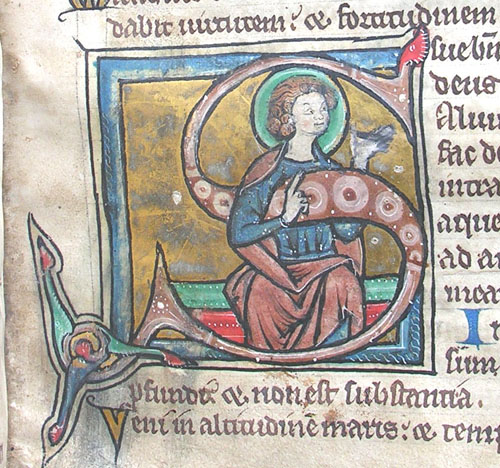 dabit uirtutem: & fortitudinem
sue bn̄
deus
Aluu
fac de
intra
aque
ad an
mea
In
sum
pfundi: & non est substantia.
Veni in altitudinē maris: & temp